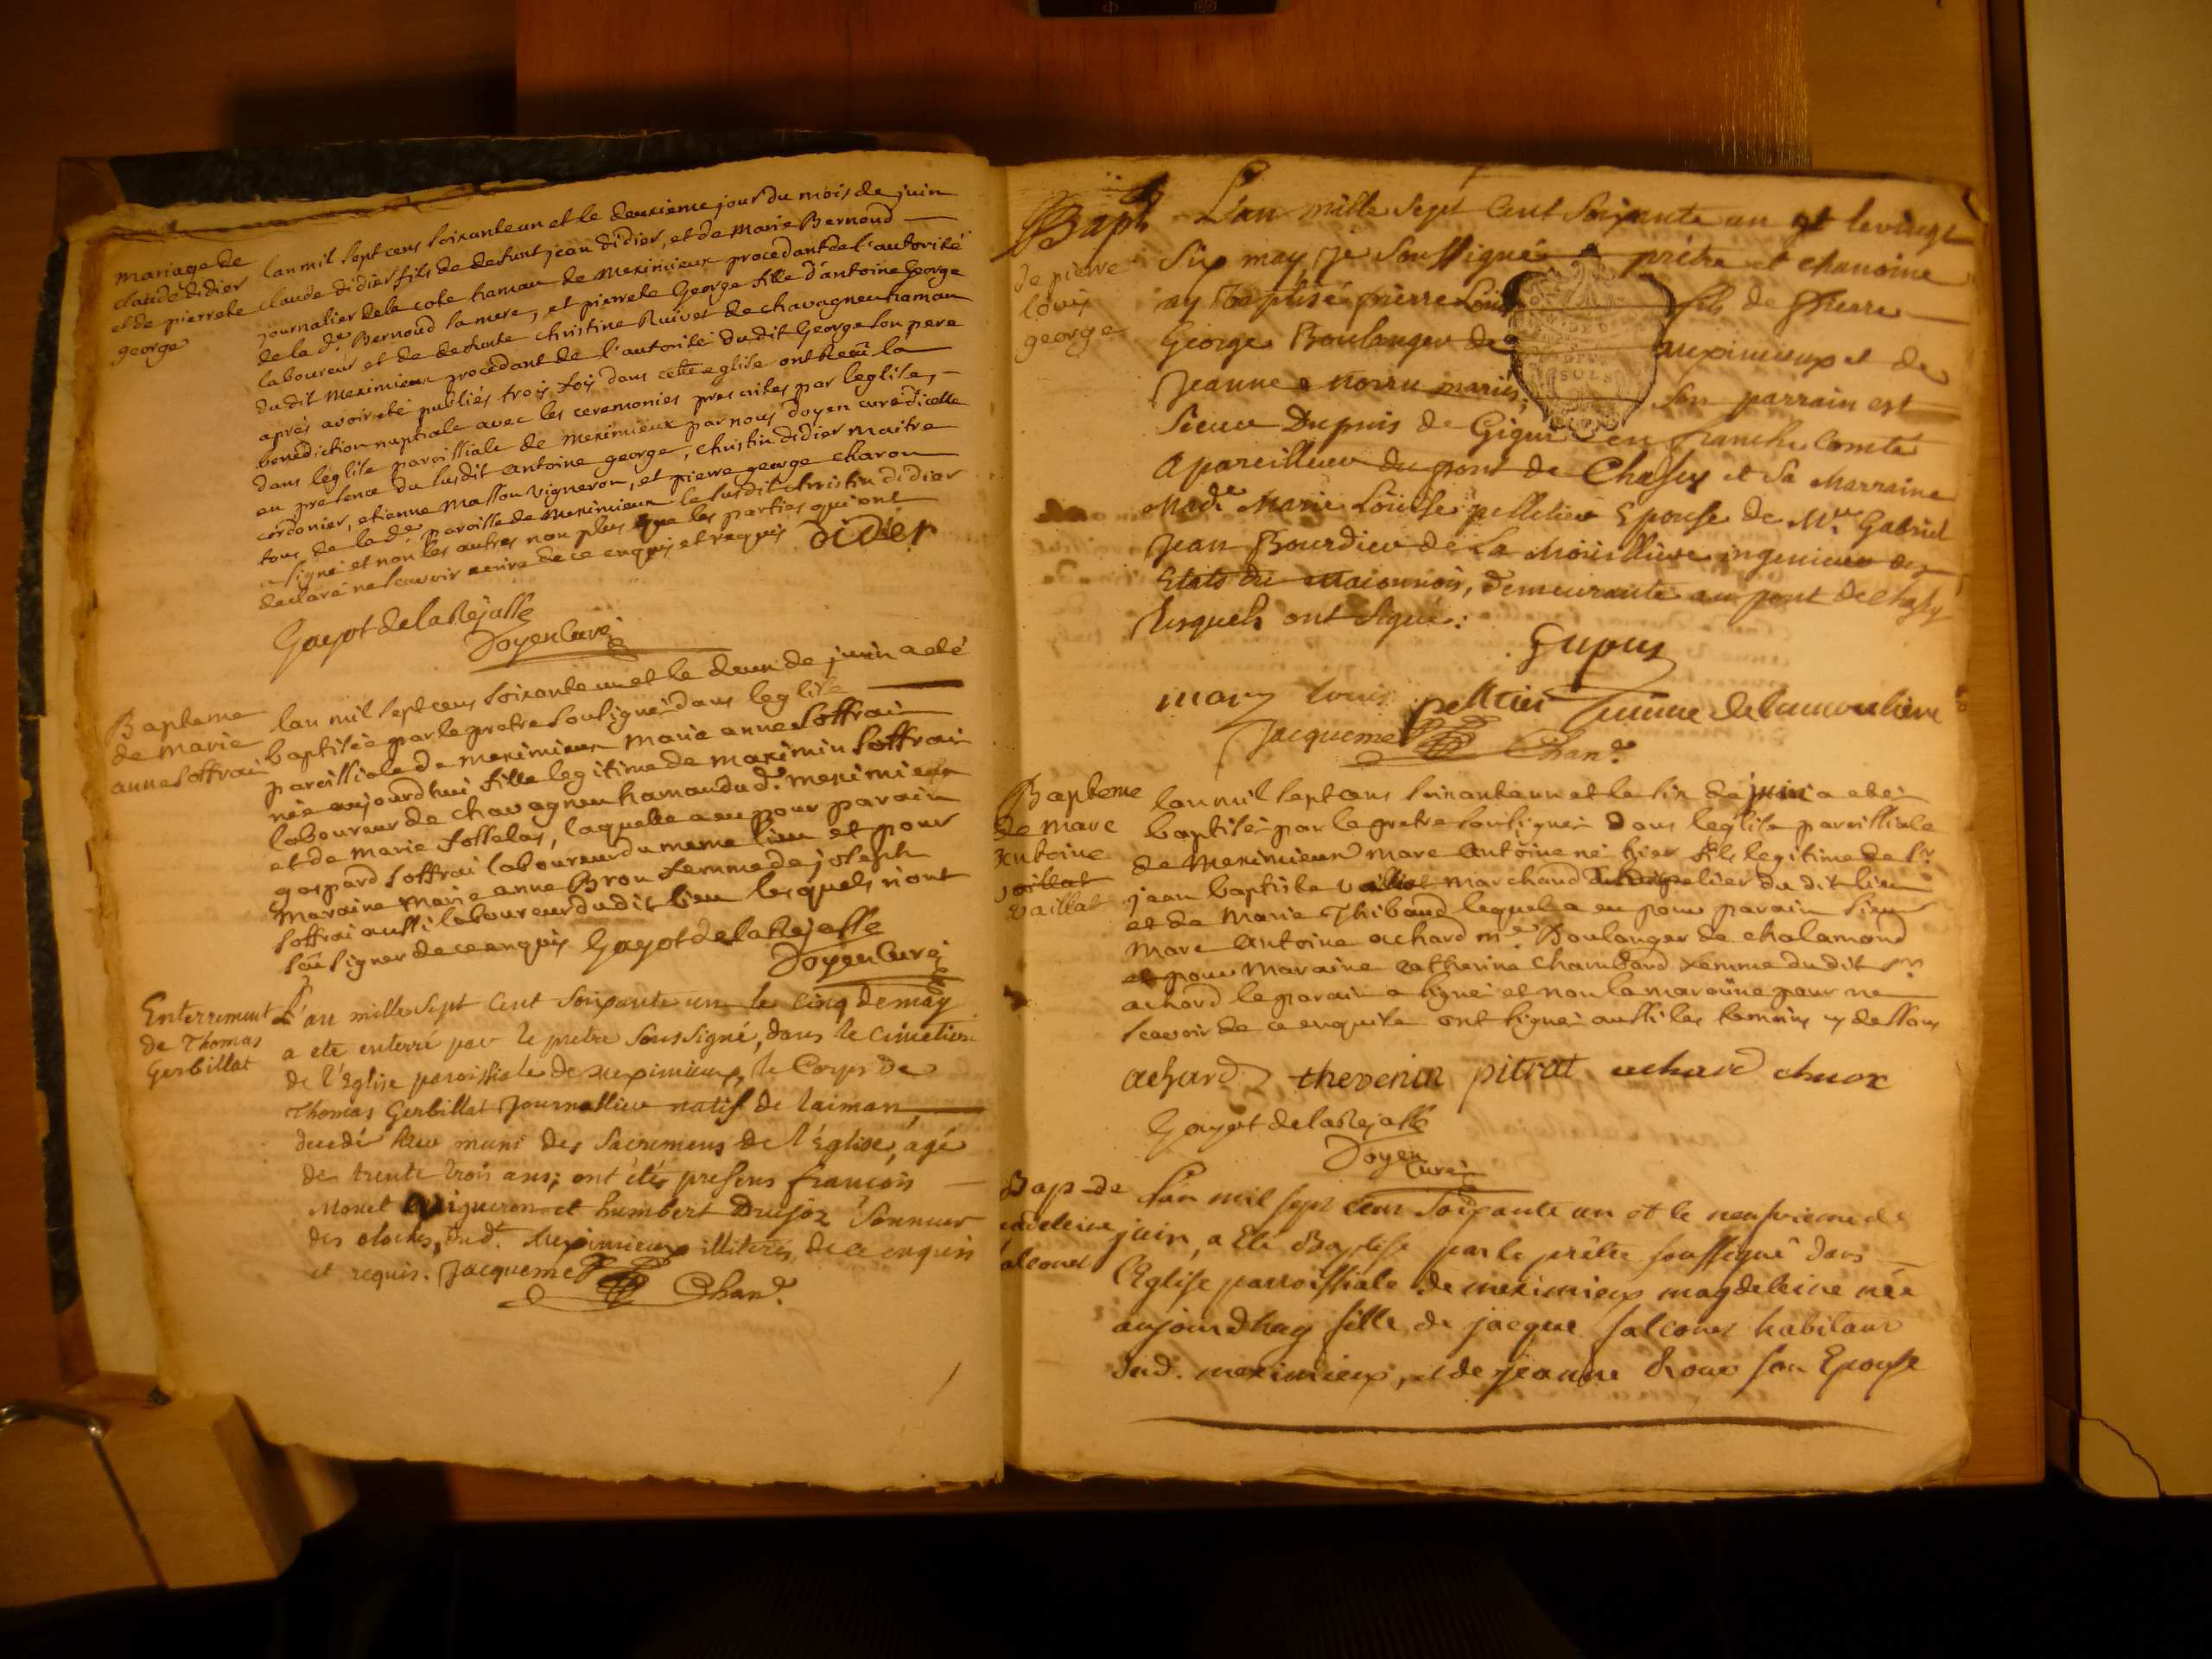 mariage de
claude didier
et de pierrete
george
lan mil sept cens soixante un et le deuxieme jour du mois de juin
claude didier fils de defunt jean didier, et de marie Bernoud
journalier de la cote hamau de meximieux procedant de l'autorité
de la de Bernoud sa mere, et pierrete George fille d'antoine George
laboureur et de defunte christine Ruivet de chavagneu hamau
du dit meximieux procedant de l'autorité du dit George son pere
aprés avoir eté publiés trois fois dans cette eglise ont Receu la
benediction nuptiale avec les ceremonies prescrites par leglise,
dans leglise paroissiale de meximieux par nous doyen curé dicelle
en presence du susdit antoine george, christin didier maitre
cordonier, etienne masson vigneron, et pierre george charon
tous de la de paroisse de meximieux le susdit christin didier
a signé et non les autres non plus que les parties qui ont
declaré ne scavoir ecrire de ce enquis et requis didier
Goyot de la Rejasse
Doyen Curé
Bapteme
de marie
anne soffrai
lan mil sept cens soixante un et le deux de juin a eté
baptisée par le pretre sousigné dans leglise
paroissiale de meximieux marie anne soffrai
née aujourdhui fille legitime de maximin soffrai
laboureur de chavagneu hamau du d. meximieux
et de marie fosselas, laquelle a eu pour parain
gaspard soffrai laboureur du meme lieu et pour
maraine marie anne Bron femme de joseph
soffrai aussi laboureur du dit lieu lesquels n'ont
sceu signer de ce enquis Goyot de la Rejasse
Doyen Curé
Enterrement
de Thomas
Gerbillat
L'an mille sept cent soixante un le cinq de may
a ete enterré par le pretre soussigné, dans le cimetiere
de l'Eglise paroissiale de meximieux, le Corps de
Thomas Gerbillat Journallier natif de laiman,
decedé hier muni des Sacremens de l'Eglise, agé
de trente trois ans; ont étés presens francois
Monet vigneron et humbert Drujoz Sonneur
des cloches, dud. Meximieux illiterés de ce enquis
et requis. Jacquemet Chan.e
Bapt
de pierre
louis
george
L'an mille sept cent soixante un et le vingt
six may, je soussigné prétre et chanoine
ay baptisé pierre Louis fils de pierre
George Boulanger de meximieux et de
Jeanne mariés, Son parrain est
Sieur Dupuis de en franche Comté
apareilleur du pont de Chasey et Sa Marraine
Made Marie Louise pelletier Epouse de Mr Gabriel
Jean Bourdieu de La Mouilliere ingenieur des
Etats du maconnois, demeurante au pont de chasey
lesquels ont signé:
Dupuis
mary louis pelletier femme delamouliere
Jacquemet Chan.e
Bapteme
de marc
antoine
vaillat
lan mil sept cens soixante un et le six de juin a eté
baptisé par le pretre sousigné dans leglise paroissiale
de meximieux marc antoine né hier fils legitime de sr
jean baptiste vaillat marchand du dit lieu
et de marie Thibaud lequel a eu pour parain sieur
marc antoine achard me Boulanger de chalamond
et pour maraine catherine chambard femme du dit sr
achard le parain a signé et non la maraine pour ne
scavoir de ce enquise ont signé aussi les temoins cy dessous
achard thevenin pitrat achard
Goyot de la Rejasse
Doyen
Curé
Bap de
madeleine
falconet
L'an mil sept cent soixante un et le neufvieme de
juin, a Eté Baptisé par le prêtre soussigné dans
l'Eglise parroissiale de meximieux magdeleine née
aujourdhuy fille de jacque falconet habitant
dud. meximieux, et de jeanne Roux son Epouse